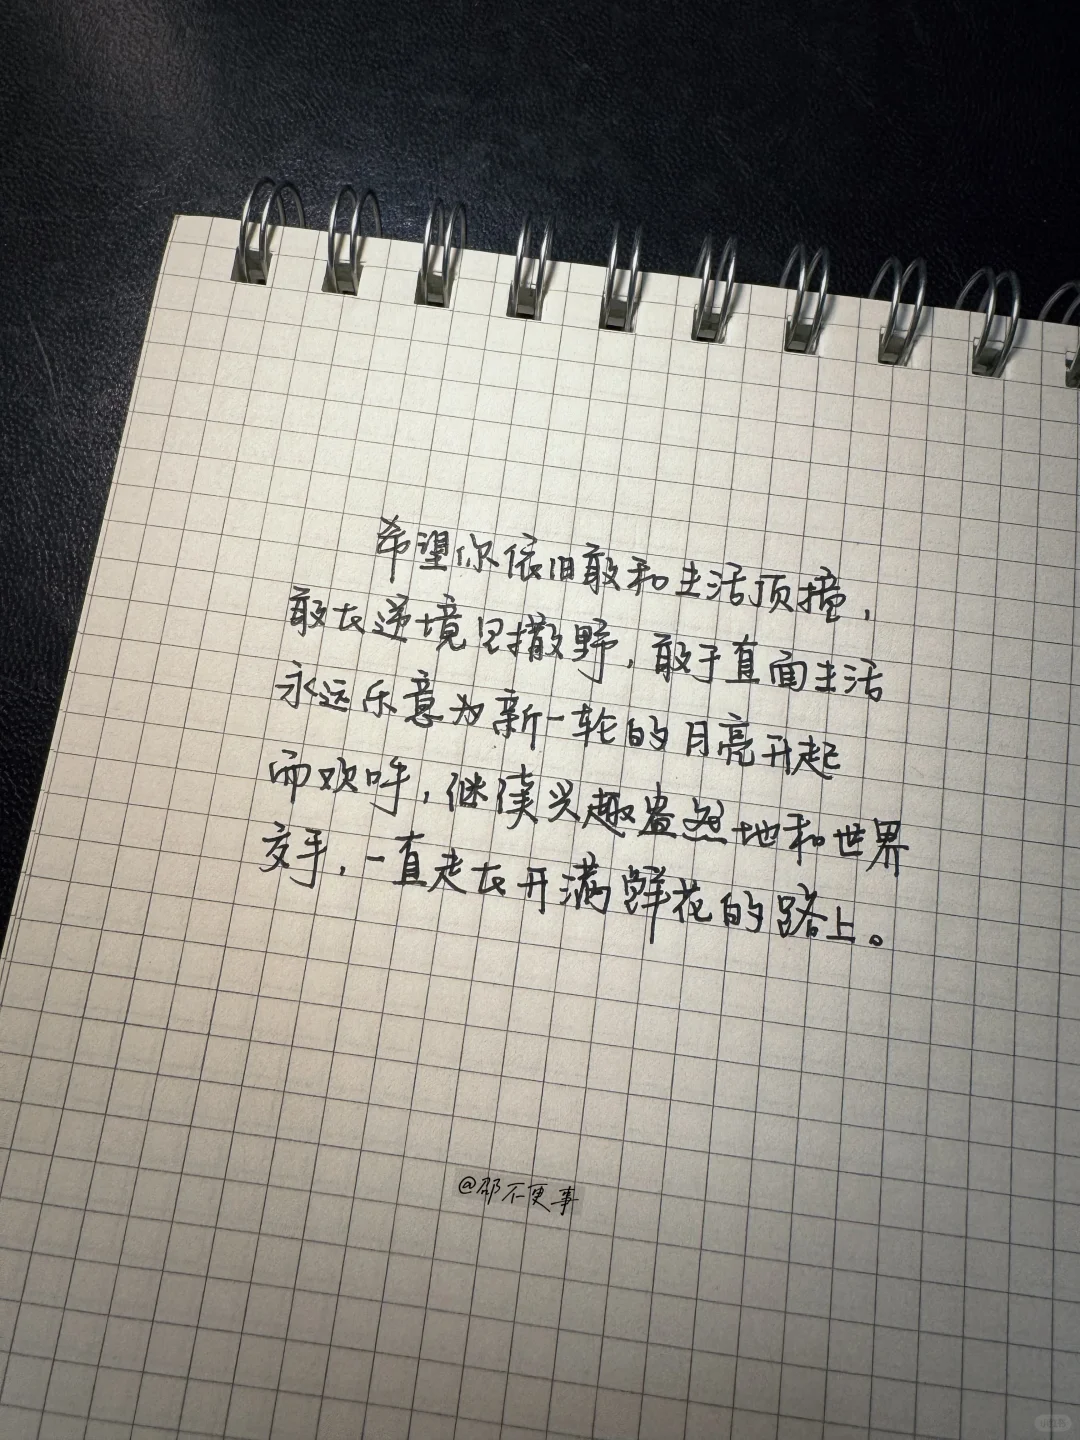 希望你依旧敢和生活顶撞，
敢在逆境里撒野，敢于直面生活
永远乐意为新一轮的月亮升起
而欢呼，继续兴趣盎然地和世界
交手，一直走在开满鲜花的路上。
@邵不更事
小红书